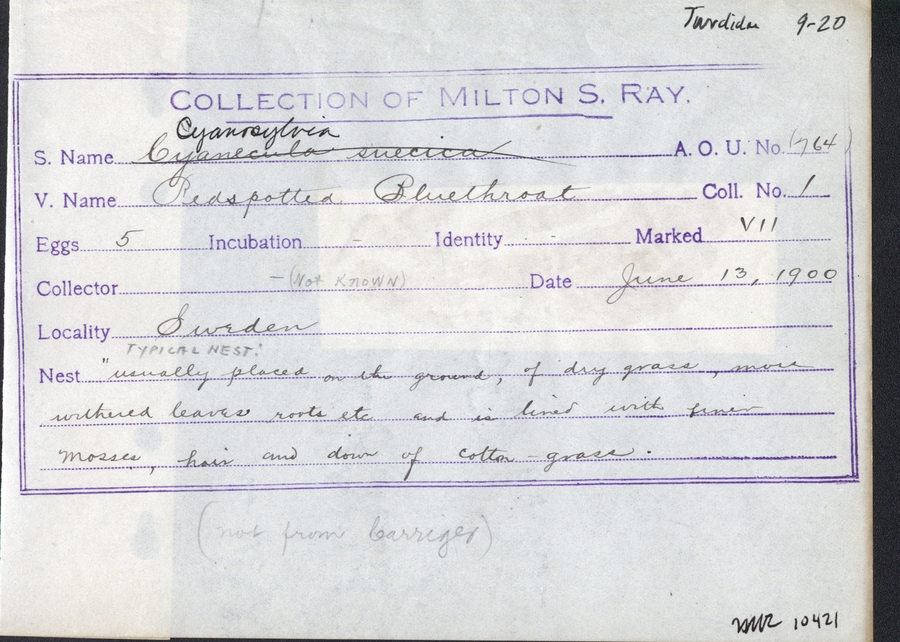 Turdidae 9-20
COLLECTION OF MILTON S. RAY.
Cyanosylvia
S. Name Cyanecula suecica A. O. U. No. (764)
V. Name Redspotted Bluethroat Coll. No. 1
Eggs 5 Incubation - Identity - Marked VII
Collector - (Not Known) Date June 13, 1900
Locality Sweden
TYPICAL NEST:
Nest "usually placed on the ground, of dry grass, moss
withered leaves roots etc and is lined with finer
mosses, hair and down of cotton-grass.
(not from Carriger)
10421